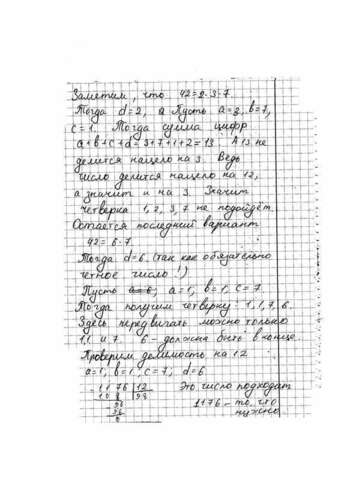 Заметим, что 42=2·3·7
Тогда d=2, а Пусть a=3, b=7,
c=1. Тогда сумма цифр
a+b+c+d=3+7+1+2=13 А 13 не
делится нацело на 3. Ведь
число делится нацело на 12,
а значит и на 3. Значит
четверка 1, 2, 3, 7 не подойдёт.
Остается последний вариант
42=6·7
Тогда d=6 (так как обязательно
четное число!)
Пусть a=6, a=1, b=1, c=7.
Тогда получим четверку: 1, 1, 7, 6.
Здесь передвигать можно только
1,1 и 7. 6 – должна быть в конце.
Проверим делимость на 12
a=1, b=1, c=7, d=6
1176 12 Это число подходит
108 98 1176 – то, что
96 нужно
96
0